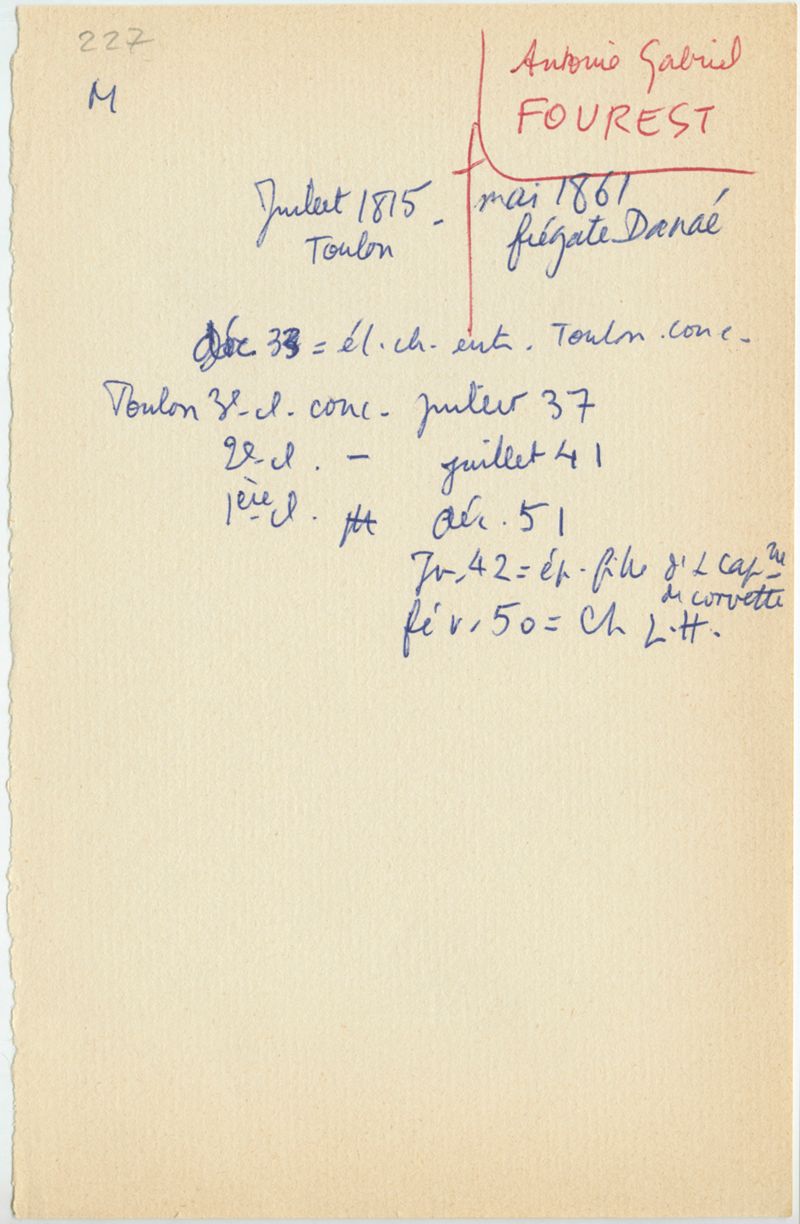 227
M
Antonio Gabriel
FOUREST
Juillet 1815 - mai 1861
Toulon frégate Danaé
déc 33 = él. ch. ent. Toulon conc.
Toulon 3e cl. conc. juillet 37
2e cl. - juillet 41
1ère cl. déc. 51
Jv. 42 = ép. fille d'1 cap ne
de corvette
fév. 50 = Ch L.H.